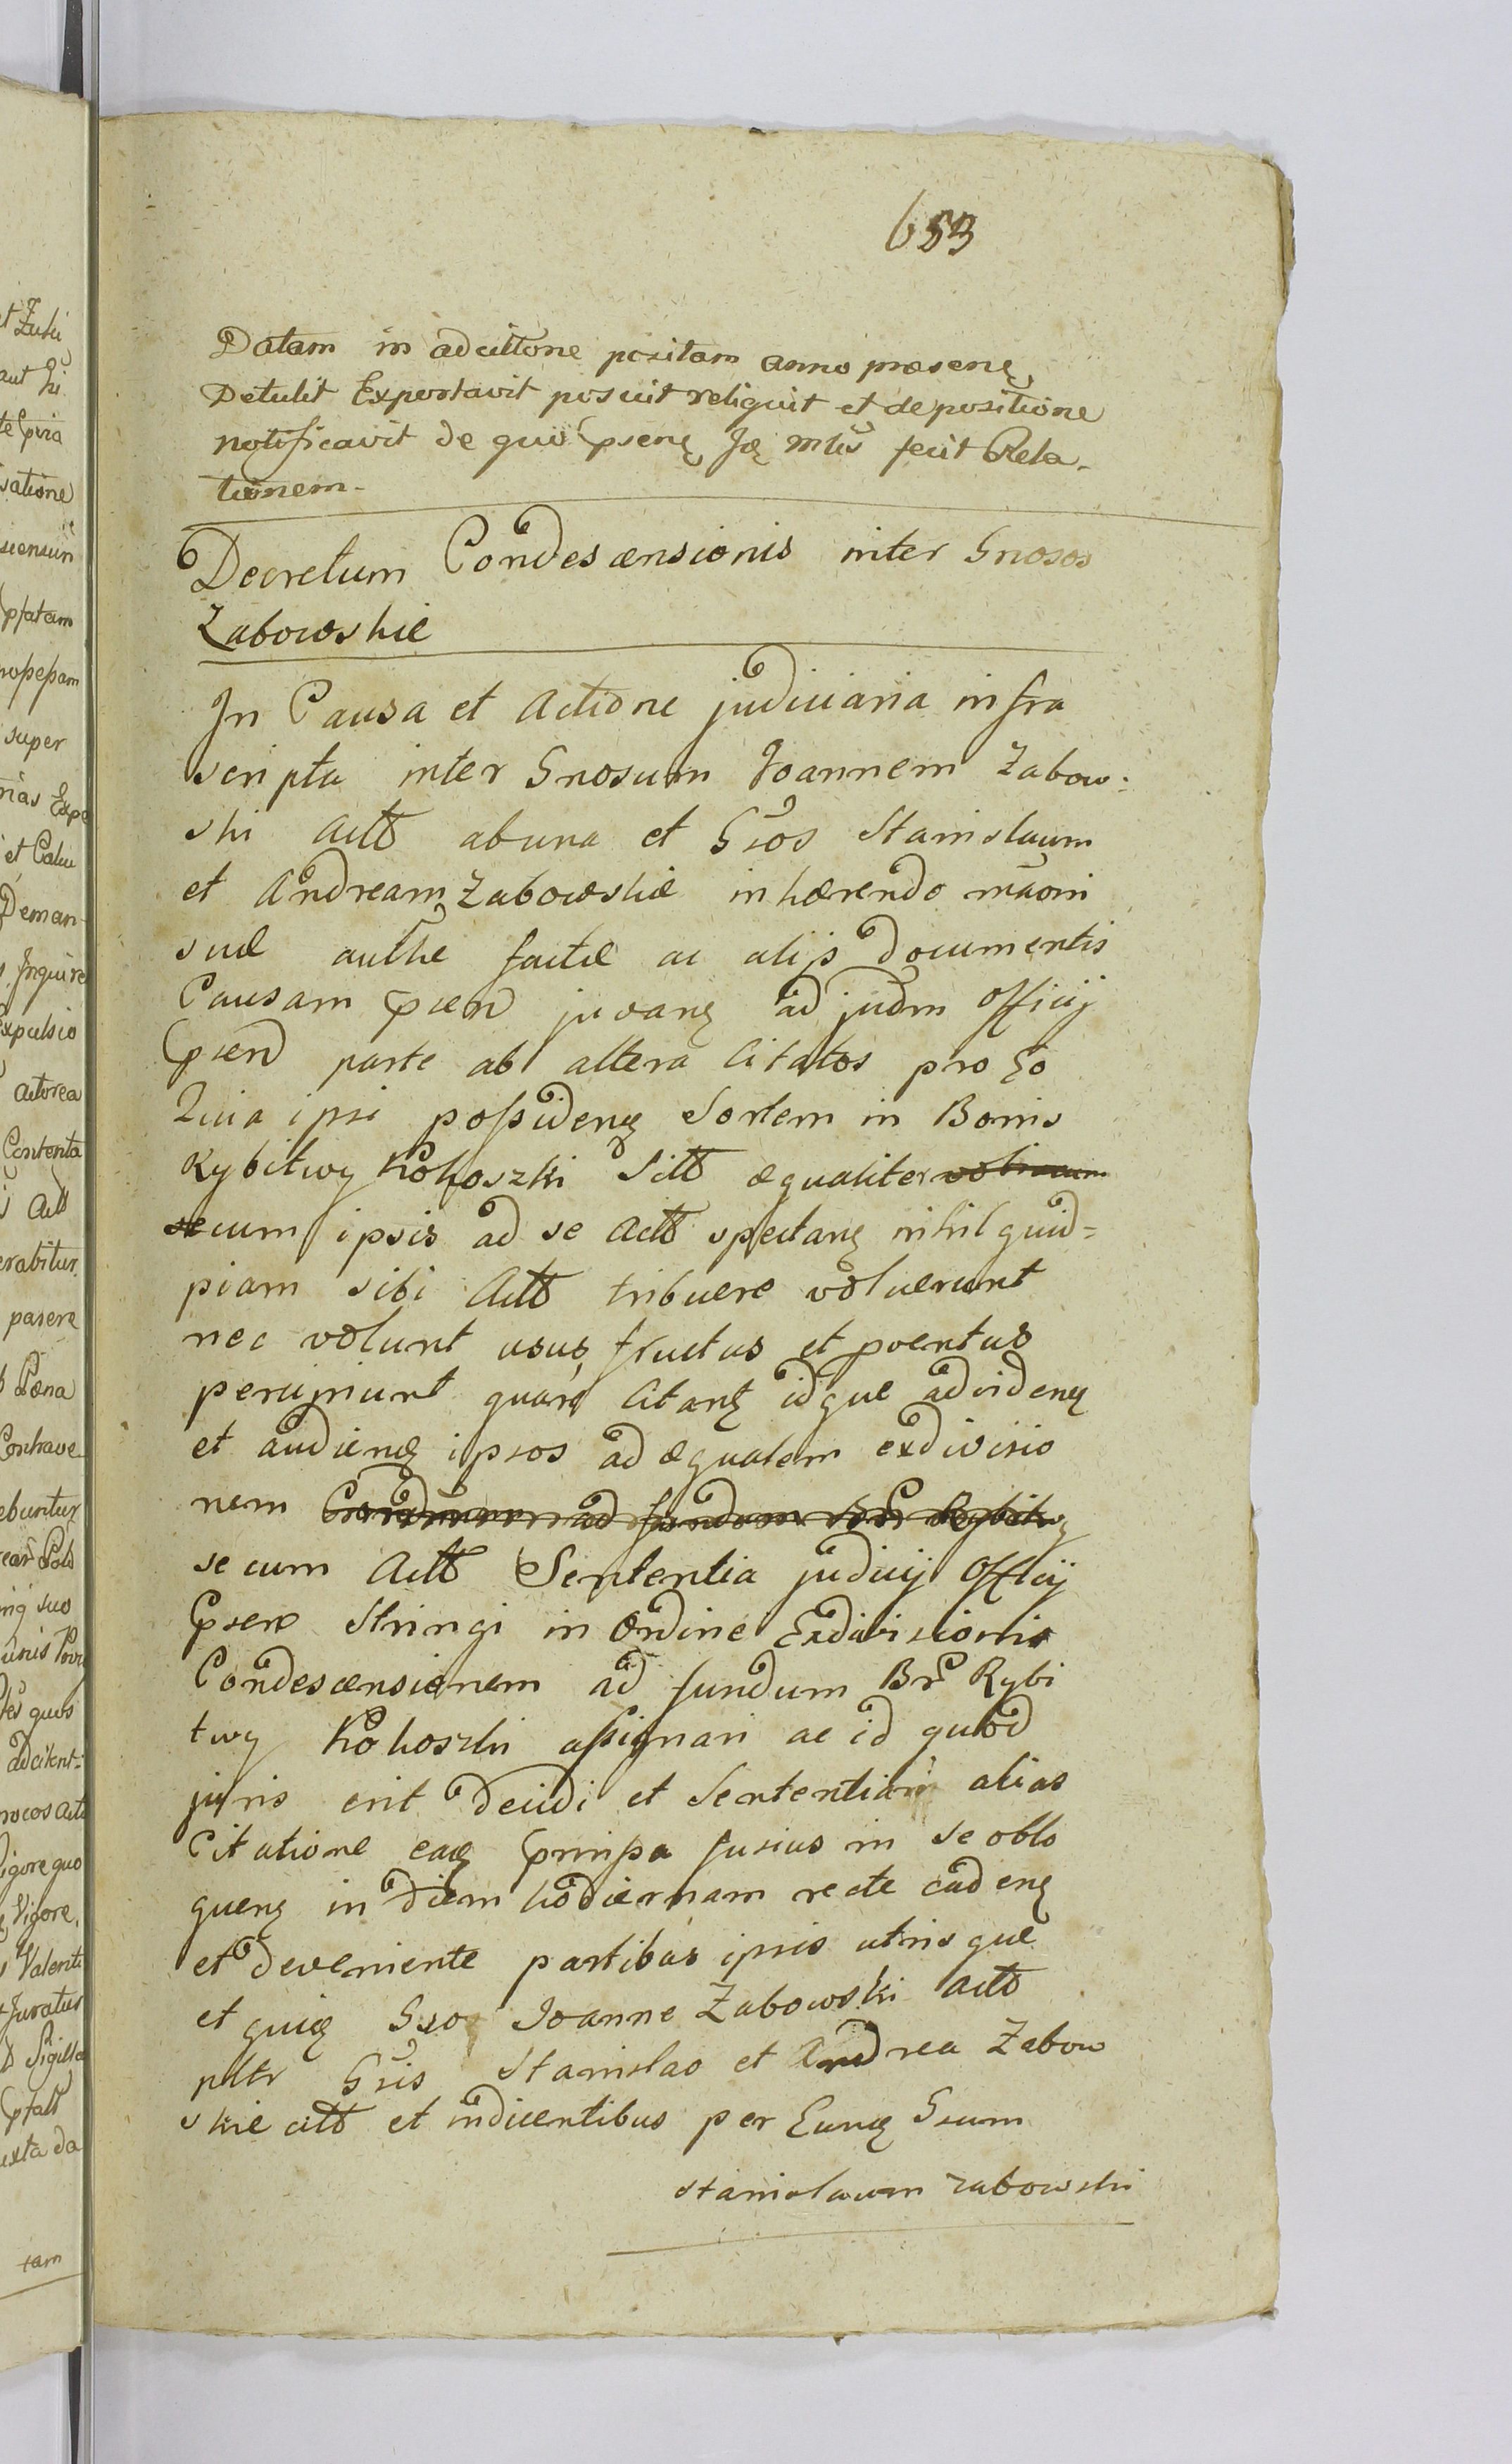 653
Datam in adcittone positam anno praesenę
Detulit Exportavit posuit reliquit et de positione
notificavit de quo psenę Ję Mtis fecit Rela-
tionem-
Decretum Condescensionis inter Gnosos
Zabowskie
In Causa et Actione judiciaria infra
scripta inter Gnosum Joannem Zabow:
ski Actt abuna et Gsos Stanislaum
et Andream Zabowskie inhærendo
suæ authe factæ ac alijs Documentis
Causam psen juvanę ad judm Officij
psen parte ab altera Citatos pro Eo
Quia ipsi possidenę Sortem in Bonis
Rybitwy Kokoszki Sitt æqualiter
secum ipsis ad se Actt spectanę nihil quid=
piam sibi Actt tribuere voluerunt
nec volunt usus fructus et proventus
percipiunt quare Citanę idque ad videnę
et audienę ipsos ad æqualem exdivisio
nem Condescensionem ad fundum Br Rybitwy
secum Actt Sententia judicij Officij
psen Stringi in Ordine Exdivisionis
Condescensionem ad fundum Br Rybi
twy Kokoszki assignari ac id quod
juris erit Decidi et Sententiari alias
Citatione eaę prinpa fusius in se oblo
quenę in Diem hodiernam recte cadenę
et Deveniente partibus ipsis utrisque
et quię Gso Joanne Zabowski Actt
pltr Gsis Stanislao et Andrea Zabow
skie citt et indicentibus per Eunę Gsum
Stanislaum Zabowski
et Zuki
aut hi
satione
pfatam
super
et Calu
Deman-
Inquire
Expulsio
Actorea
Contenta
Actt
erabitur
pasere
Pæna
Contrave
ebuntur
suo
quos
adcitent:
igore quo
Vigore,
Valenti
Juratur
Sigilla
uxta da
tam